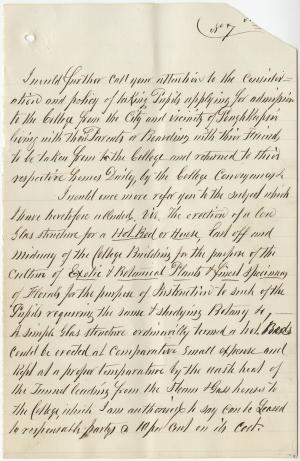 I would further call your attention to the consider-
ation and policy of taking Pupils applying for admission
to the College from the City and vicinity of Poughkeepsie
living with their Parents or Boarding with their Friends
to be taken from & to the College and returned to their
respective homes Daily, by the College Conveyances.
I would once more refer you to the subject which
I have heretofore alluded, viz. The erection of a low
Glass structure for a Hot Bed or House, East off and
midway of the College Building for the purpose of the
culture of Exotic & Botanical Plants & Fixed Specimens
of Florals for the purpose of Instruction to such of the
Pupils requiring the same & studying Botany &c
A simple Glass structure ordinarily termed a hot Beds
could be erected at Comparative Small expense and
kept at a proper temperature by the waste heat of
the Tunnel leading from the Steam & Gass houses to
the College which I am authorised to say can be Leased
to responsable partys @ 10 per Cent on its Cost.